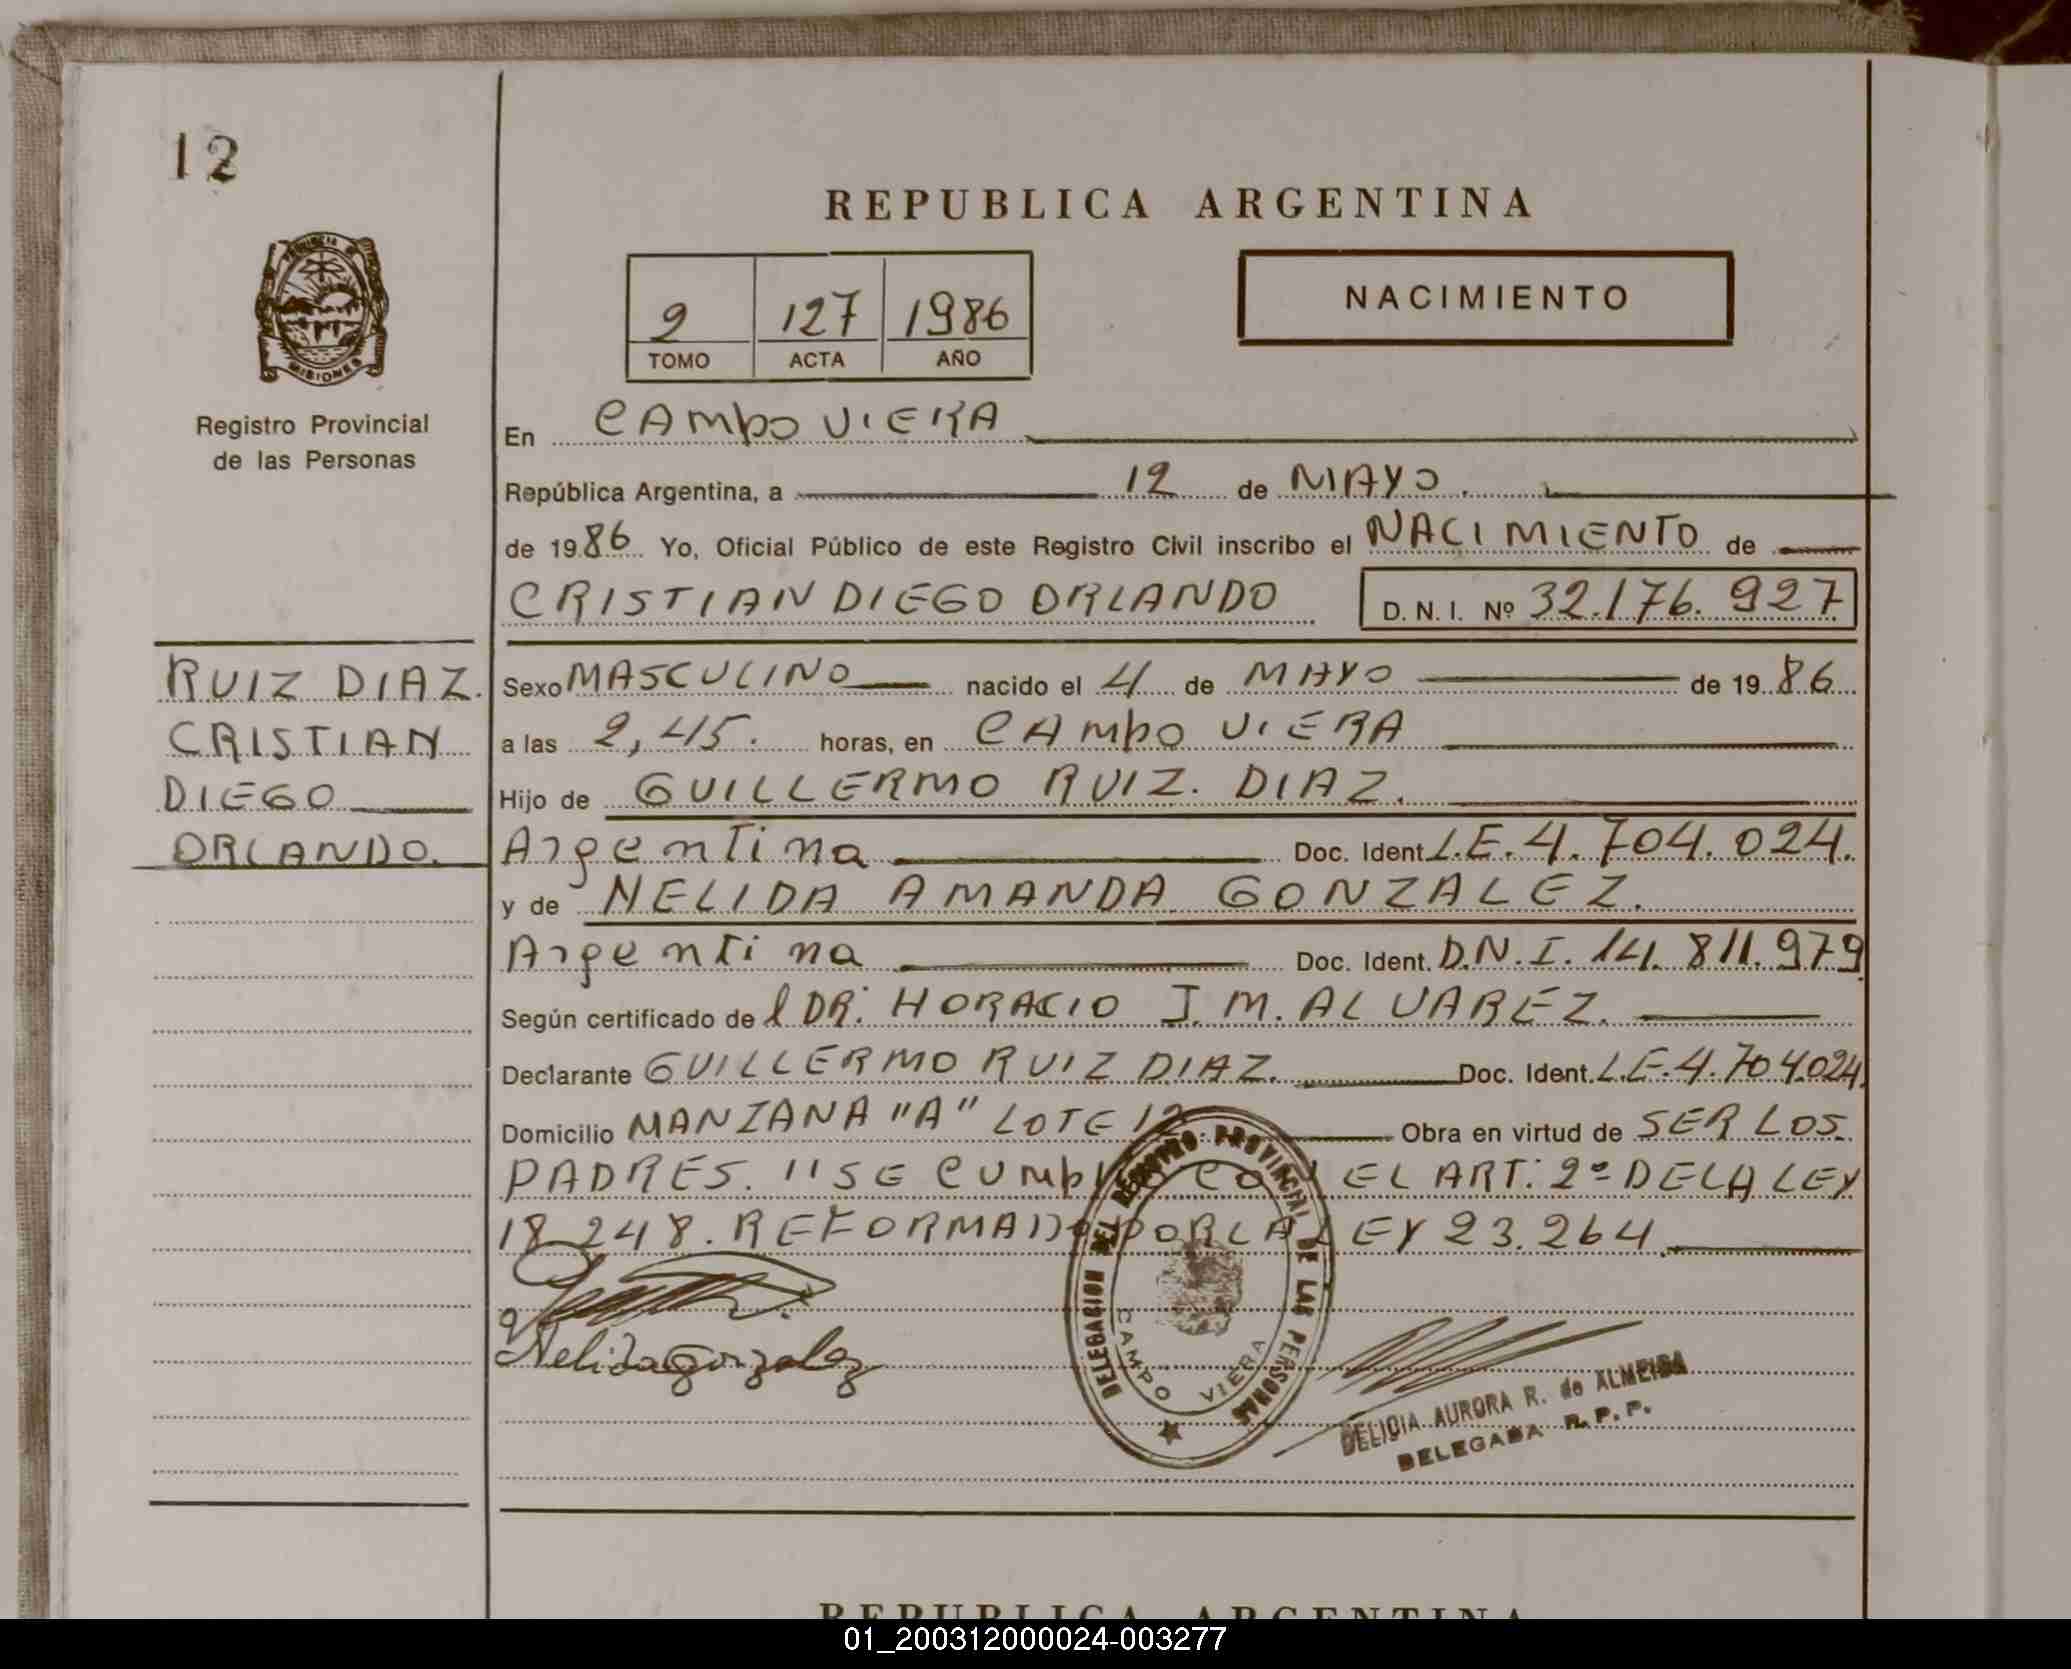 12
REPUBLICA ARGENTINA
PROVINCIA DE
MISIONES
NACIMIENTO
2 127 1986
TOMO ACTA AÑO
Registro Provincial
de las Personas
En CAMPO VIERA
República Argentina, a 12 de MAYO.
de 1986 Yo, Oficial Público de este Registro Civil inscribo el NACIMIENTO de
CRISTIAN DIEGO ORLANDO D. N. I. Nº 32.176.927
RUIZ DIAZ.
CRISTIAN
DIEGO
ORLANDO.
Sexo MASCULINO nacido el 4 de MAYO de 1986
a las 2,45. horas, en CAMPO VIERA
Hijo de GUILLERMO RUIZ. DIAZ.
Argentina Doc. Ident. L.E. 4.704.024.
y de NELIDA AMANDA GONZALEZ.
Argentina Doc. Ident. D.N.I. 14.811.979
Según certificado del DR. HORACIO J. M. ALVAREZ.
Declarante GUILLERMO RUIZ DIAZ. Doc. Ident. L.E. 4.704.024.
Domicilio MANZANA "A" LOTE 12 Obra en virtud de SER LOS
PADRES. "SE CUMPLIO CON EL ART: 2º DE LA LEY
18.248. REFORMADO POR LA LEY 23.264.
Nelida gonzalez
DELEGACION DEL REGISTRO PROVINCIAL DE LAS PERSONAS
CAMPO VIERA
DELICIA AURORA R. de ALMEIDA
DELEGADA R. P. P.
REPUBLICA ARGENTINA
01_200312000024-003277